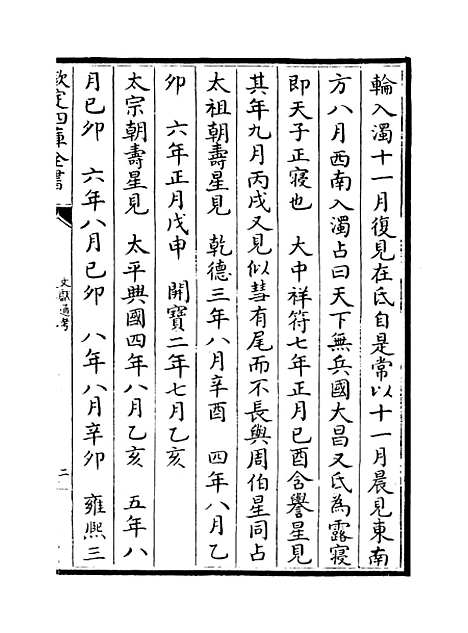 輪入濁十一月復見在氐自是常以十一月晨見東南
方八月西南入濁占曰天下無兵國大昌又氐為露寢
即天子正寢也　大中祥符七年正月已酉含譽星見
其年九月丙戌又見似彗有尾而不長與周伯星同占
太祖朝壽星見　乾德三年八月辛酉　四年八月乙
卯　六年正月戊申　開寶二年七月乙亥
太宗朝壽星見　太平興國四年八月乙亥　五年八
月已卯　六年八月已卯　八年八月辛卯　雍熙三
欽定四庫全書
文獻通考
二